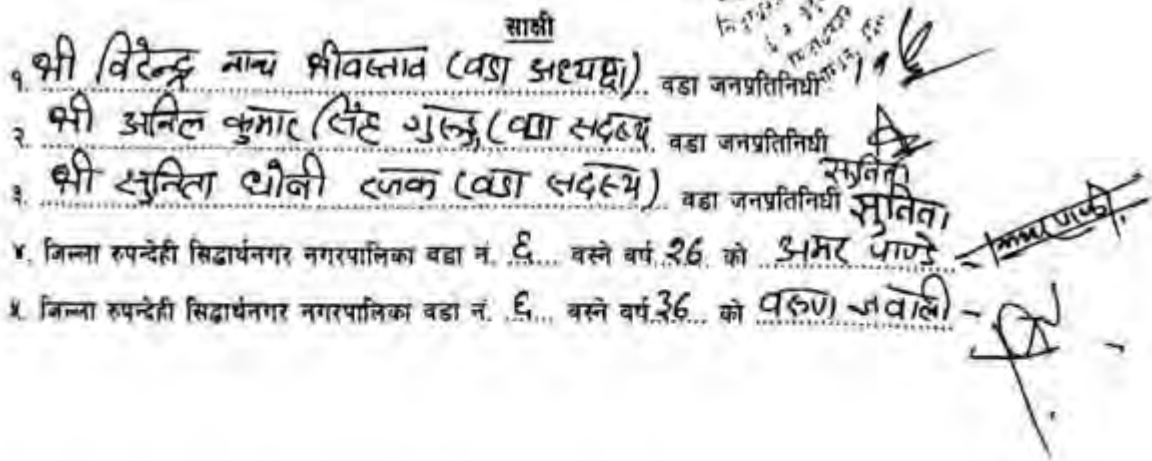 साक्षी
१. श्री विरेन्द्र नाथ श्रीवास्तव (वडा अध्यक्ष) वडा जनप्रतिनिधी
२. श्री अनिल कुमार सिंह (वडा सदस्य वडा जनप्रतिनिधी
३. श्री सुनिता धोबी रजक (वडा सदस्य) वडा जनप्रतिनिधी सुनिता
सुनिता
४. जिल्ला रुपन्देही सिद्धार्थनगर नगरपालिका वडा नं. ६ बस्ने वर्ष २६ को अमर पाण्डे -
५. जिल्ला रुपन्देही सिद्धार्थनगर नगरपालिका वडा नं. ६ बस्ने वर्ष ३६ को वरुण ज्ञवाली -